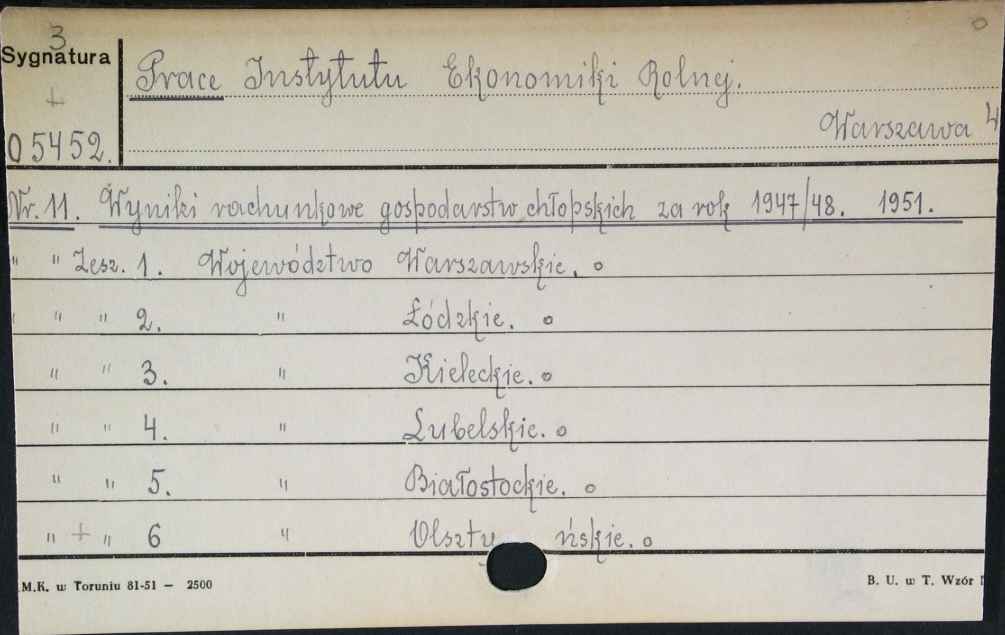 3
Sygnatura
+
05452.
Prace Instytutu Ekonomiki Rolnej.
Warszawa 4
Nr. 11. Wyniki rachunkowe gospodarstw chłopskich za rok 1947/48. 1951.
" " Zesz. 1. Województwo Warszawskie. o
" " " 2. " Łódzkie. o
" " 3. " Kieleckie. o
" " 4. " Lubelskie. o
" " 5. " Białostockie. o
" + " 6 " Olsztyńskie. o
M.K. w Toruniu 81-51 — 2500
B. U. w T. Wzór